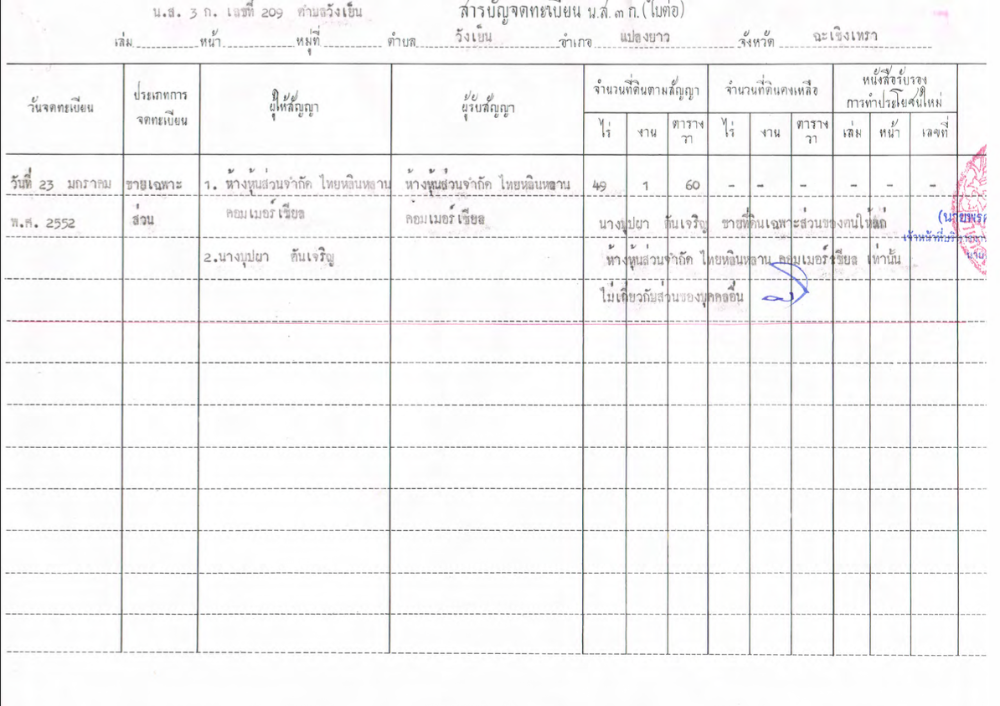 น.ส. 3 ก. เลขที่ 209 ตำบลวังเย็น
สารบัญจดทะเบียน น.ส. ๓ ก. (ใบต่อ)
เล่ม หน้า หมู่ที่ ตำบล วังเย็น อำเภอ แปลงยาว จังหวัด ฉะเชิงเทรา
วันจดทะเบียน
ประเภทการ
จดทะเบียน
ผู้ให้สัญญา
ผู้รับสัญญา
จำนวนที่ดินตามสัญญา
ไร่ งาน ตาราง
วา
จำนวนที่ดินคงเหลือ
ไร่ งาน ตาราง
วา
หนังสือรับรอง
การทำประโยชน์ใหม่
เล่ม หน้า เลขที่
วันที่ 23 มกราคม ขายเฉพาะ 1. ห้างหุ้นส่วนจำกัด ไทยหลินหลาน ห้างหุ้นส่วนจำกัด ไทยหลินหลาน 49 1 60 - - - - - -
พ.ศ. 2552 ส่วน คอมเมอร์เชียล คอมเมอร์เชียล นางบุปผา ตันเจริญ ขายที่ดินเฉพาะส่วนของตนให้แก่
2.นางบุปผา ตันเจริญ ห้างหุ้นส่วนจำกัด ไทยหลินหลาน คอมเมอร์เชียล เท่านั้น
ไม่เกี่ยวกับส่วนของบุคคลอื่น